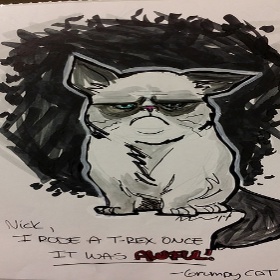 Nick,
I RODE A T-REX ONCE
IT WAS AWFUL!
-Grumpy CAT